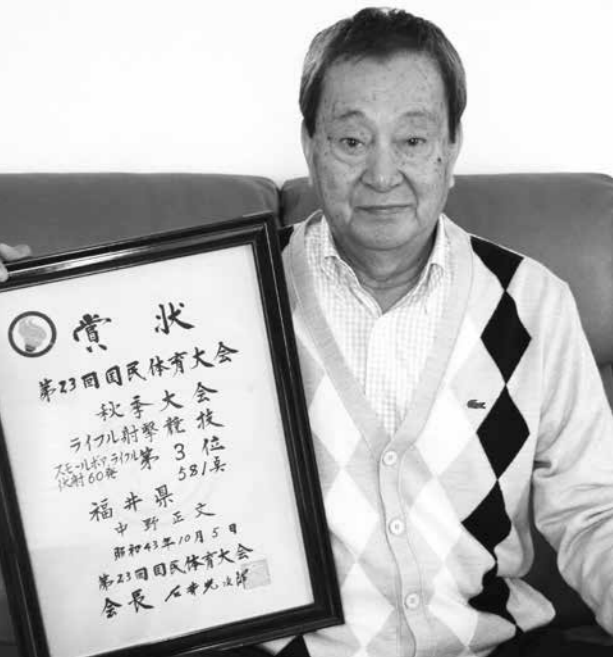 賞状
第23回国民体育大会
秋季大会
ライフル射撃競技
スモールボアライフル
伏射60発
第3位
581点
福井県
中野正文
昭和43年10月5日
第23回国民体育大会
会長 石井光次郎